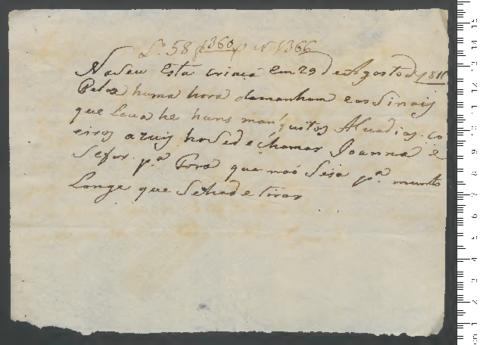 Lº 58 f 360 Nº 1366
Naseu esta criaca em 29 de Agosto d 1811
Pelaz huma hora damanham e os Sinais
que Leva he huns manguitos
azuis hasede chamar Joanna e
Se for pª Fora que naó Seja pª muito
Longe que Sehade tirar